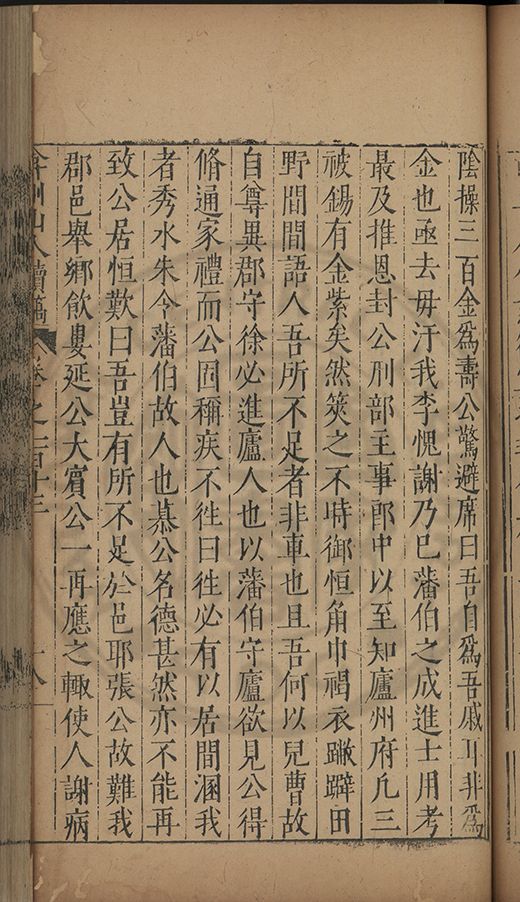 陰操三百金爲壽公驚避席曰吾自爲吾戚耳非爲
金也亟去毋汙我李愧謝乃已藩伯之成進士用考
最及推恩封公刑部主事郎中以至知廬州府凡三
被錫有金紫矣然筴之不時御恒角巾褐衣蹩躃田
野間間語人吾所不足者非車也且吾何以兒曹故
自尊異郡守徐必進廬人也以藩伯守廬欲見公得
脩通家禮而公固稱疾不徃曰徃必有以居間溷我
者秀水朱令藩伯故人也慕公名德甚然亦不能再
致公居恒歎曰吾豈有所不足於邑耶張公故難我
郡邑舉鄉飲婁延公大賓公一再應之輙使人謝病
弇州山人續稿 卷之一百十三 十八